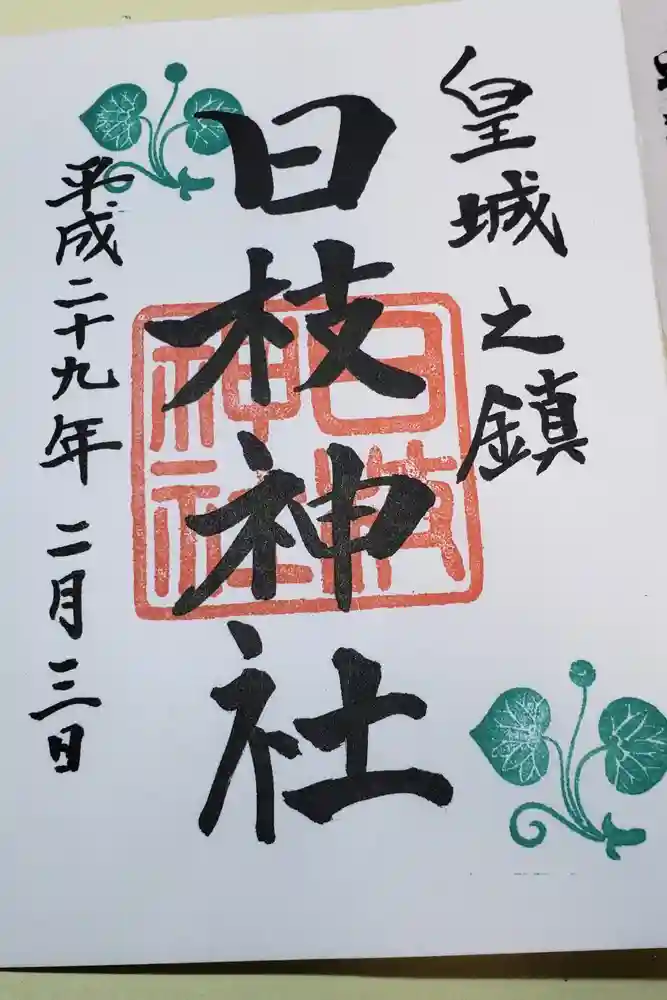 皇城之鎮
日枝神社
日枝神社
平成二十九年二月三日